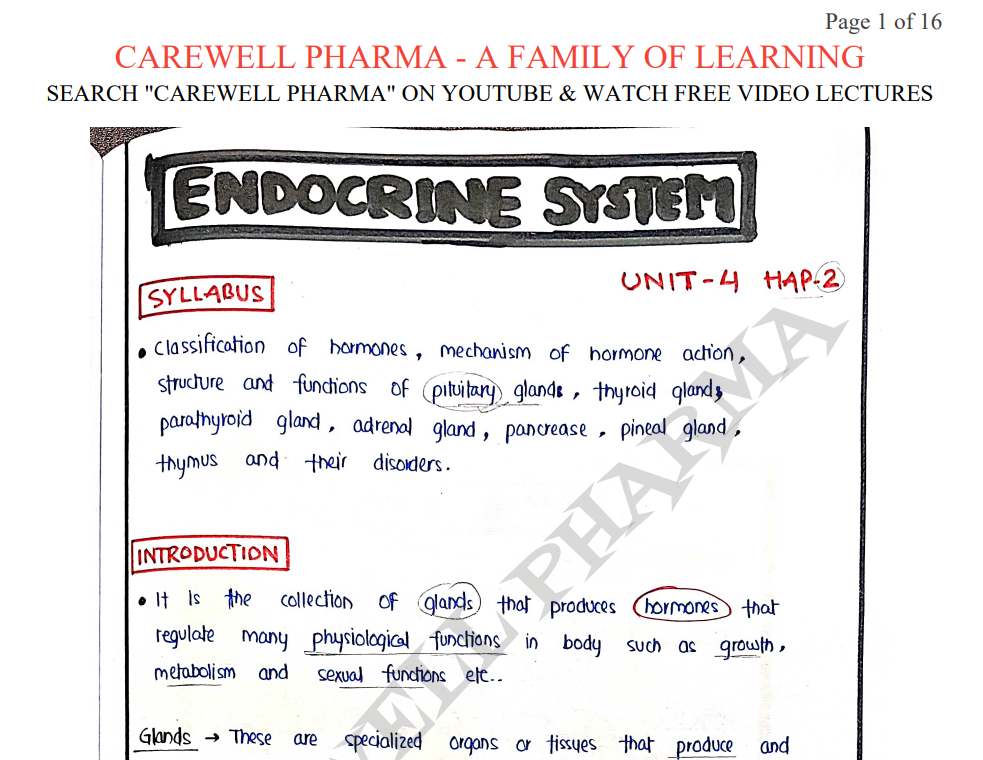 Page 1 of 16
CAREWELL PHARMA - A FAMILY OF LEARNING
SEARCH "CAREWELL PHARMA" ON YOUTUBE & WATCH FREE VIDEO LECTURES
ENDOCRINE SYSTEM
UNIT-4 HAP-2
SYLLABUS
• Classification of hormones, mechanism of hormone action,
structure and functions of pituitary glands, thyroid glands,
parathyroid gland, adrenal gland, pancrease, pineal gland,
thymus and their disorders.
INTRODUCTION
• It is the collection of glands that produces hormones that
regulate many physiological functions in body such as growth,
metabolism and sexual functions etc..
Glands → These are specialized organs or tissues that produce and
WELL PHARMA